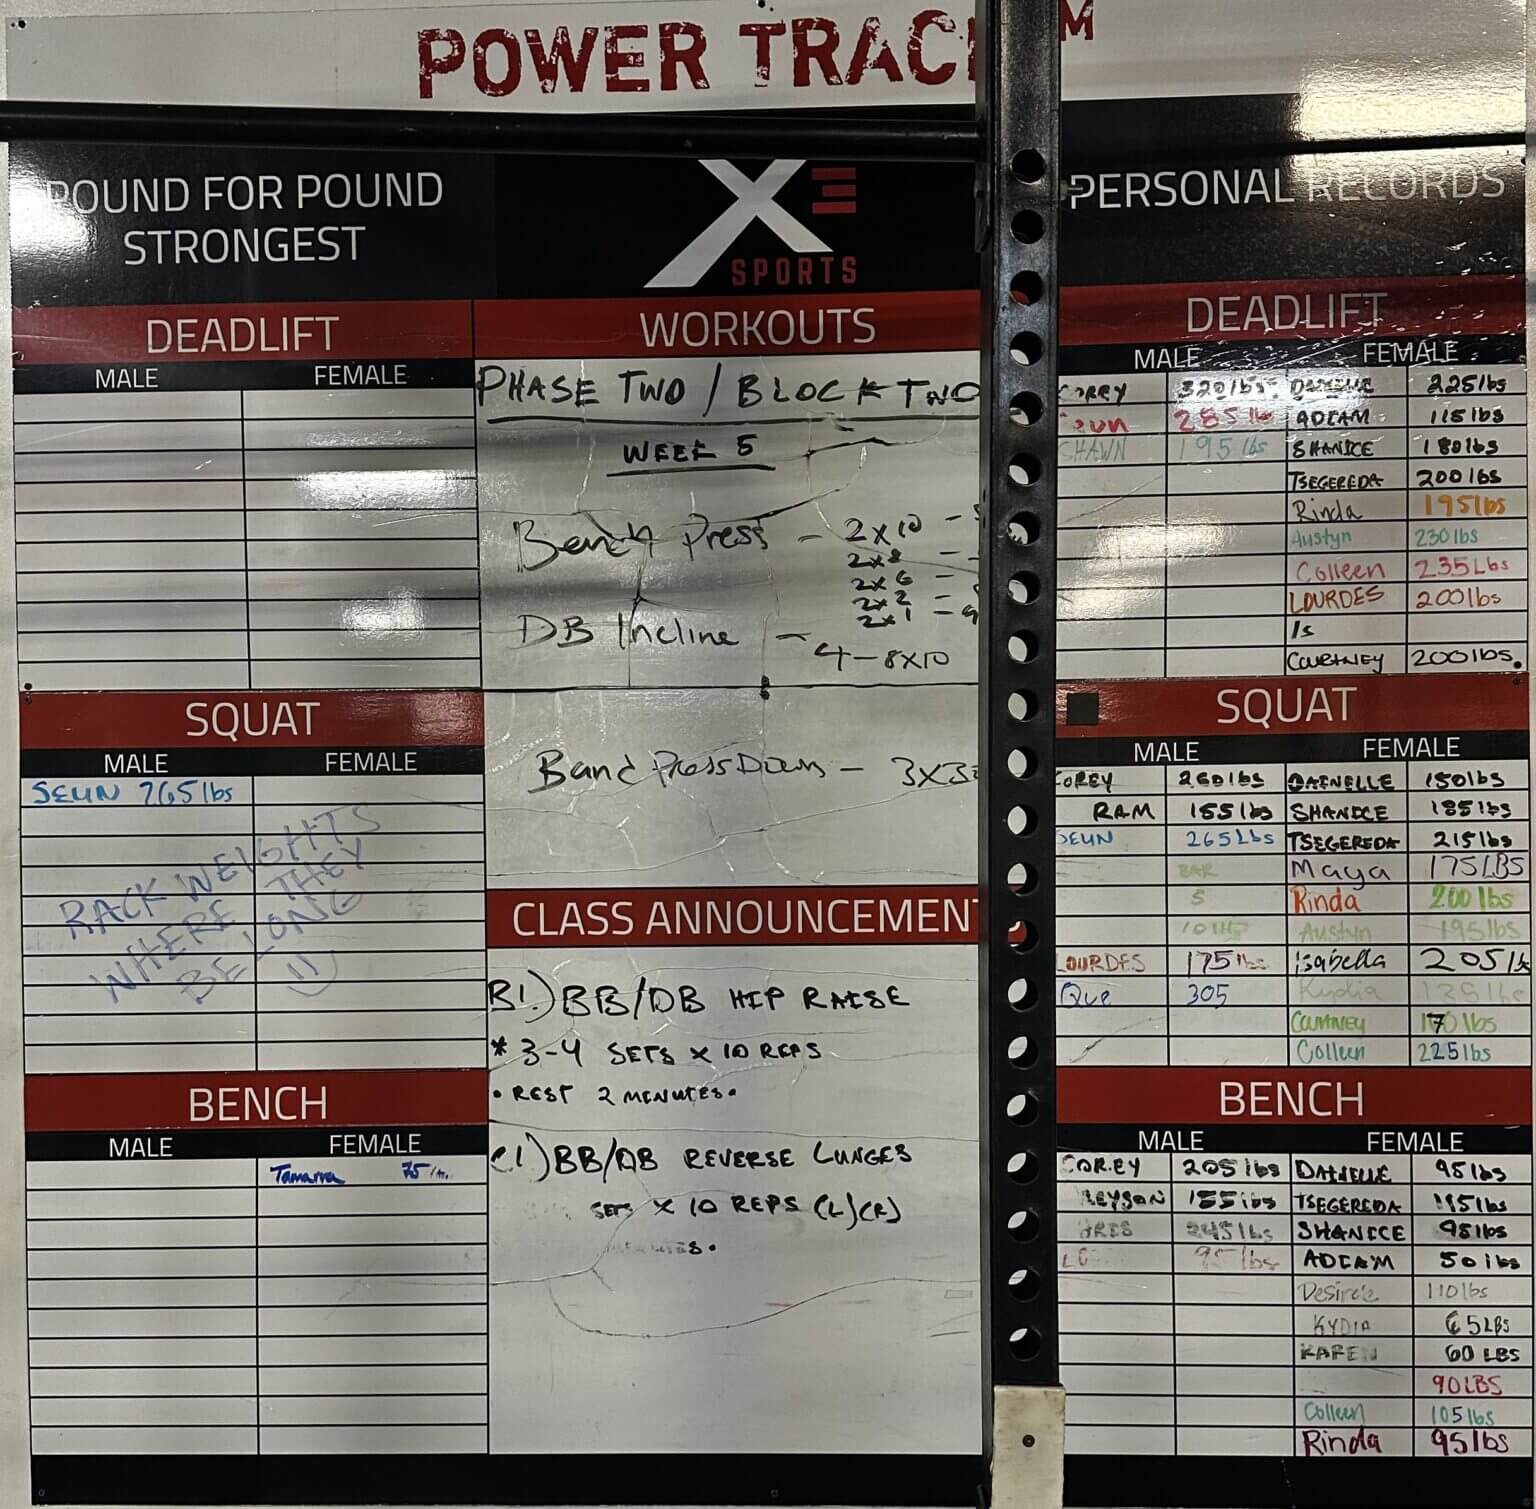 POWER
M
POUND FOR POUND
STRONGEST
DEADLIFT
MALE FEMALE
SQUAT
MALE FEMALE
SEUN 265lbs
RACK WEIGHTS
WHERE THEY
BELONG
BENCH
MALE FEMALE
Tamarra 75
X
SPORTS
WORKOUTS
PHASE TWO / BLOCK TWO
WEEK 5
Bench Press - 2x10 -
2x8 -
2x6 -
2x2 -
2x1 -
DB Incline -
4-8x10
Band Press Down -
CLASS ANNOUNCEMENT
B1.) BB/DB HIP RAISE
* 3-4 SETS X 10 REPS
• REST 2 MINUTES.
C1.) BB/DB REVERSE LUNGES
SETS X 10 REPS (L)(R)
PERSONAL RECORDS
DEADLIFT
MALE FEMALE
COREY 320lbs. 225lbs
285lb ADIAM 115lbs
SHAWN 195lbs SHANICE 180lbs
TSEGEREDA 200lbs
Rinda 195lbs
Austyn 230lbs
Colleen 235Lbs
LOURDES 200lbs
COURTNEY 200lbs.
SQUAT
MALE FEMALE
COREY 260lbs DAINELLE 150lbs
RAM 155lbs SHANICE 185lbs
SEUN 265Lbs TSEGEREDA 215lbs
Maya 175LBS
5 Rinda 200lbs
Austyn 195lbs
LOURDES 175lbs Isabella 205lb
Que 305 Kydia
Courtney lbs
Colleen 225lbs
BENCH
MALE FEMALE
COREY 205lbs DAINELLE 95lbs
155lbs TSEGEREDA
245lbs SHANICE 95lbs
95lbs ADIAM 50lbs
110lbs
KYDIA 65LBS
KAREN 60 LBS
90LBS
Colleen 105lbs
Rinda 95lbs